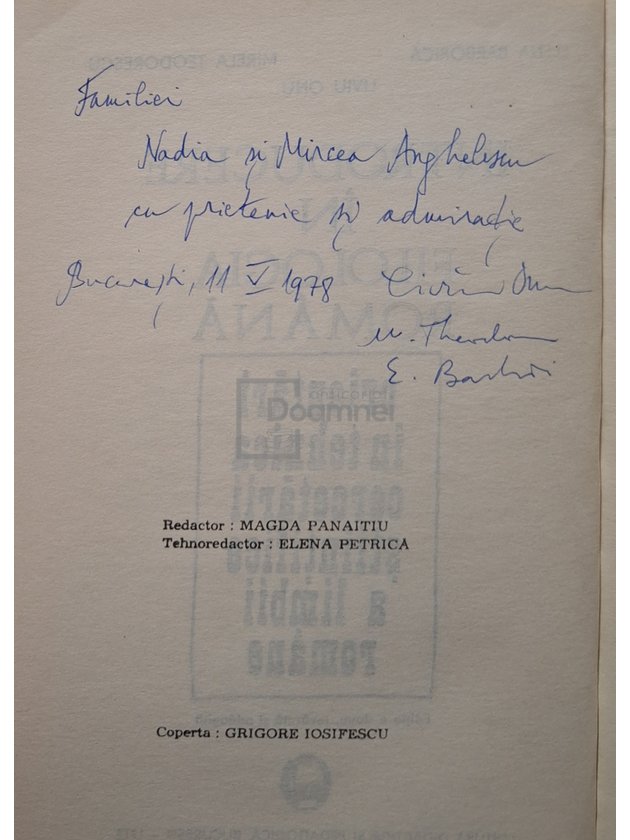 Familiei
Nadia și Mircea Anghelescu
cu prietenie și admirație
București, 11 V 1978 Liviu Onu
M. Theodor
E. Barbori
anticariat
Doamnei
Redactor : MAGDA PANAITIU
Tehnoredactor : ELENA PETRICĂ
Coperta : GRIGORE IOSIFESCU